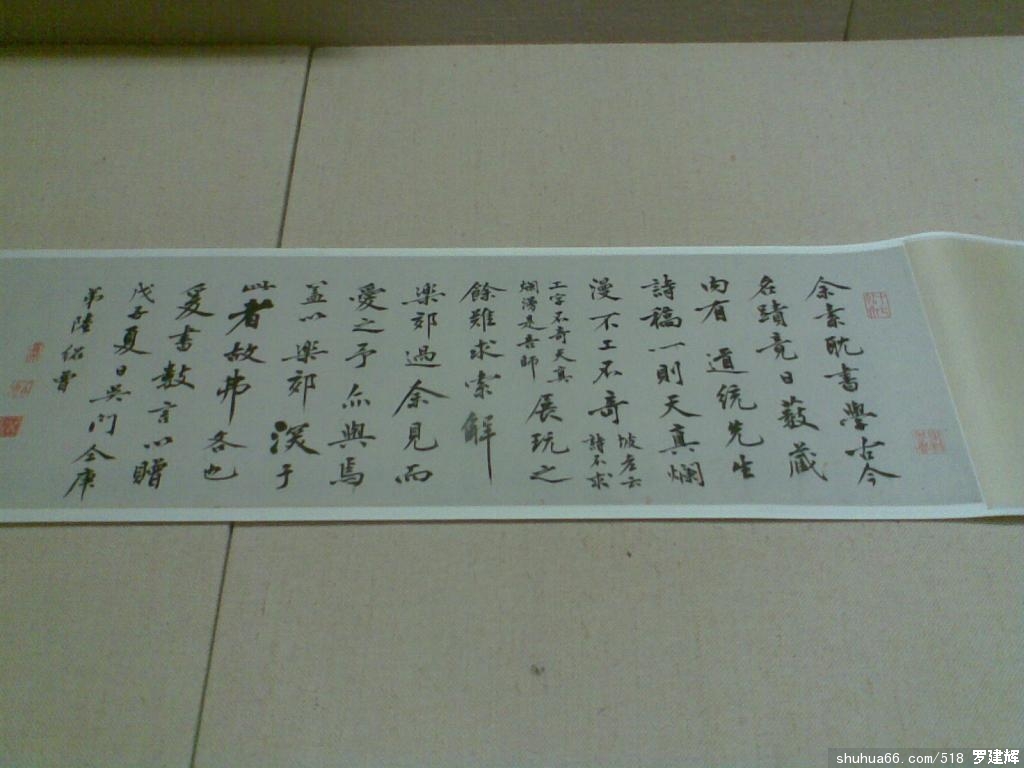 余素耽书学古今
名蹟竟日薮藏
内有道统先生
詩稿一則天真爛
漫不工不奇坡老云詩不求
工字不奇天真
爛漫是吾師展玩之
餘難求索解
樂郊過余見而
愛之予亦與焉
盖以樂郊深于
此者故弗吝也
爰書数言以贈
戊子夏日吴门令庚
弟陸紹曾
shuhua66.com/518 罗建辉